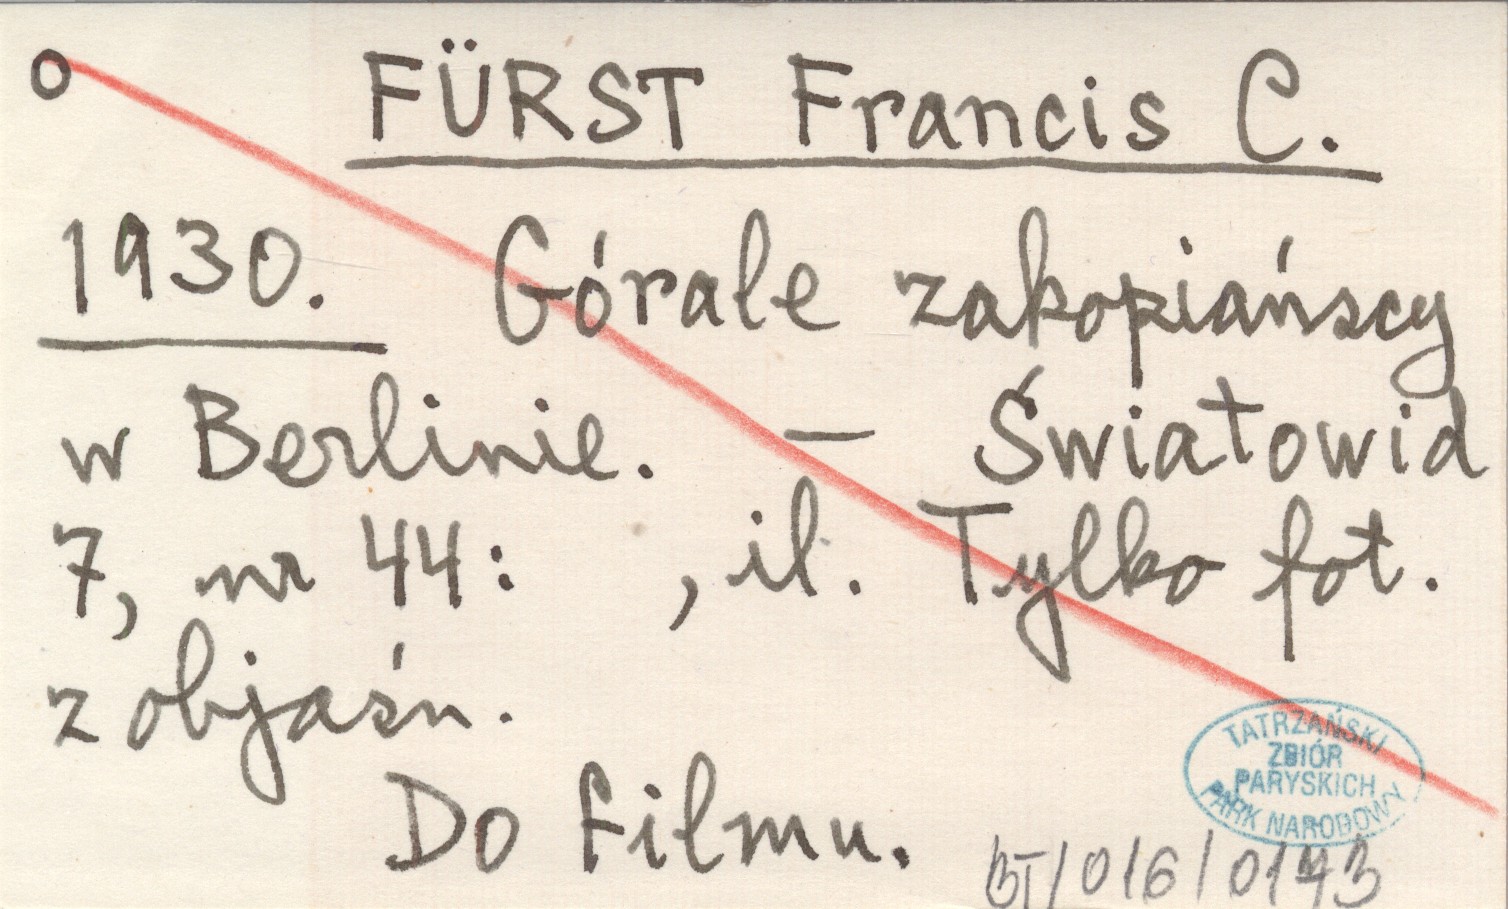 o FÜRST Francis C.
1930. Górale zakopiańscy
w Berlinie. — Światowid
7, nr 44: , il. Tylko fot.
z objaśn.
Do filmu.
TATRZAŃSKI
ZBIÓR
PARYSKICH
PARK NARODOWY
BT/016/0173